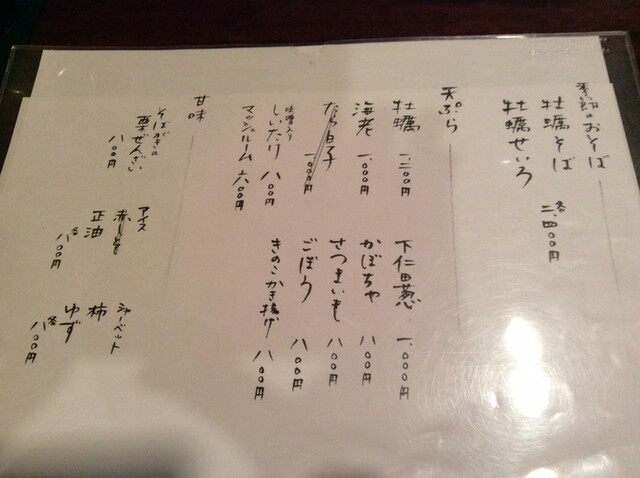 季節のおそば
牡蠣そば
牡蠣せいろ
各二、四〇〇円
天ぷら
牡蠣 一、二〇〇円
海老 一、〇〇〇円
たら白子 一、〇〇〇円
味噌入り
しいたけ 八〇〇円
マッシュルーム 六〇〇円
下仁田葱 一、〇〇〇円
かぼちゃ 八〇〇円
さつまいも 八〇〇円
ごぼう 八〇〇円
きのこかき揚げ 八〇〇円
甘味
そばがきの
栗ぜんざい
八〇〇円
アイス
赤しそ
正油
各八〇〇円
シャーベット
柿
ゆず
各八〇〇円